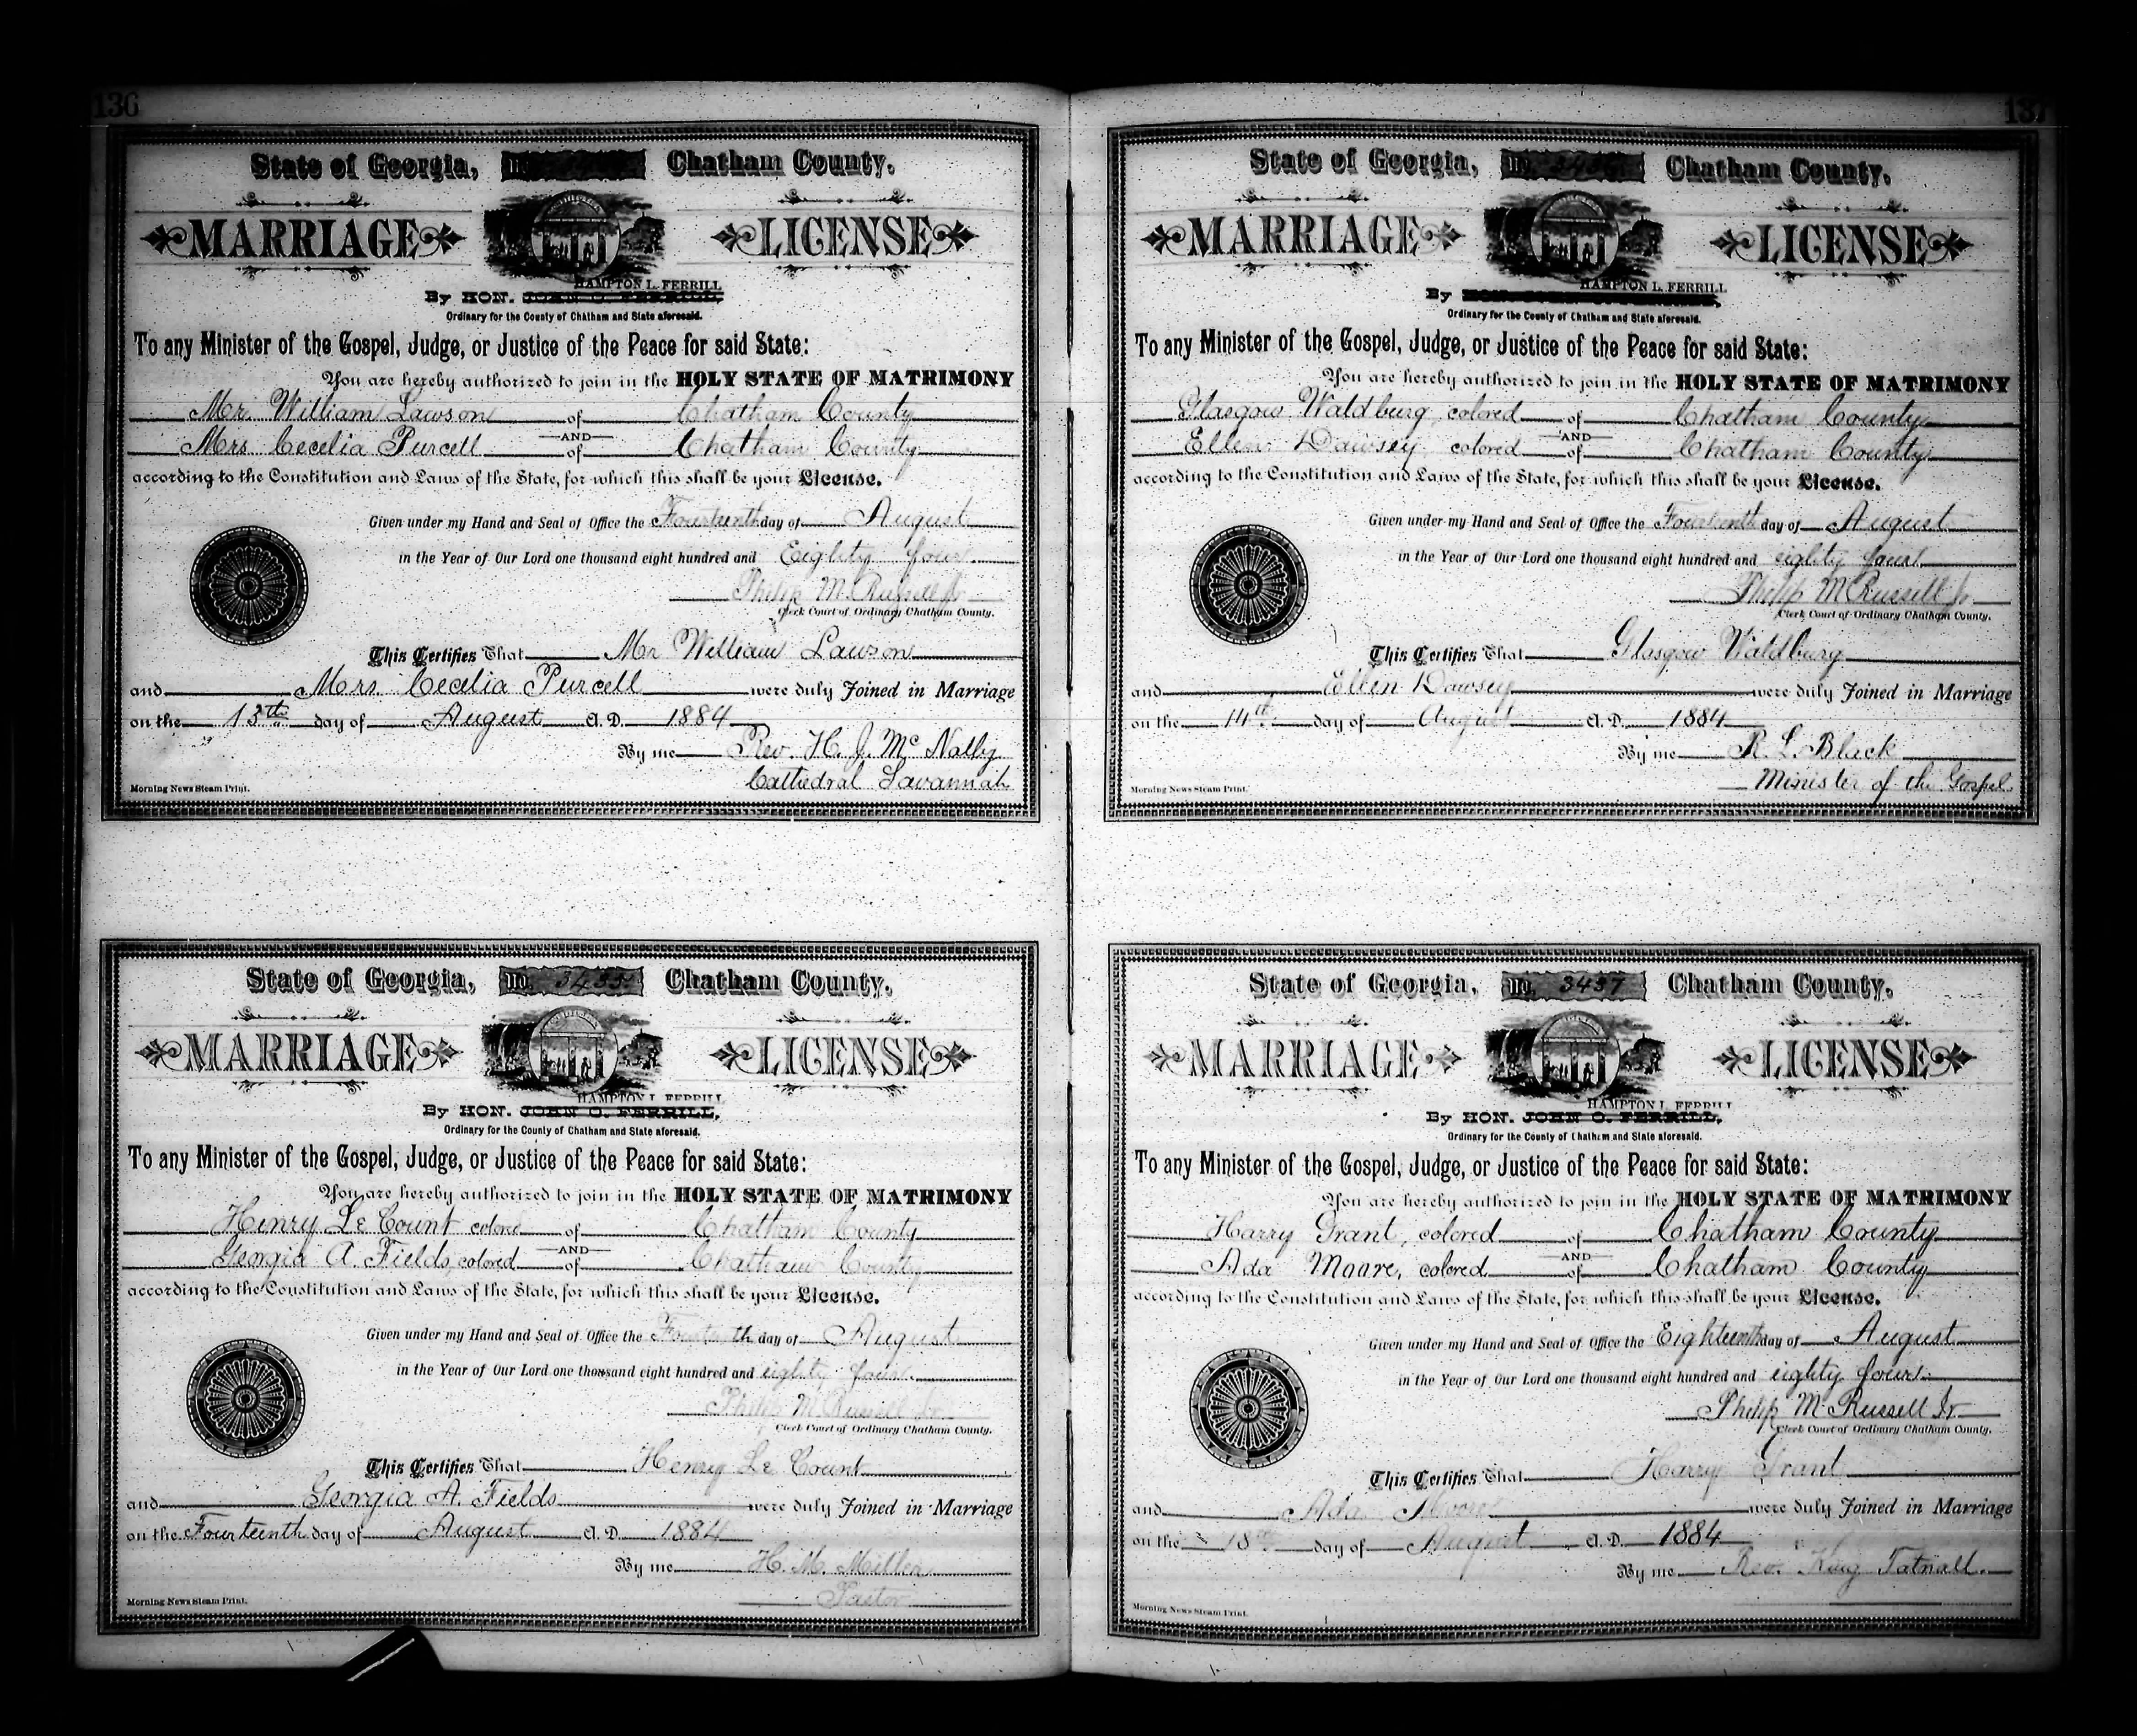 136
State of Georgia, Chatham County.
MARRIAGE LICENSE
HAMPTON L. FERRILL
By HON. JOHN O. FERRILL,
Ordinary for the County of Chatham and State aforesaid.
To any Minister of the Gospel, Judge, or Justice of the Peace for said State:
You are hereby authorized to join in the HOLY STATE OF MATRIMONY
Mr. William Lawson of Chatham County
AND
Mrs. Cecelia Purcell of Chatham County
according to the Constitution and Laws of the State, for which this shall be your License.
Given under my Hand and Seal of Office the Fourteenth day of August
in the Year of Our Lord one thousand eight hundred and Eighty four.
Philip M. Russell Jr
Clerk Court of Ordinary Chatham County.
This Certifies That Mr William Lawson
and Mrs. Cecelia Purcell were duly Joined in Marriage
on the 15th day of August A. D. 1884
By me Rev. H. J. Mc Nally
Cathedral Savannah
Morning News Steam Print.
State of Georgia, No. 3435 Chatham County.
MARRIAGE LICENSE
HAMPTON L. FERRILL
By HON. JOHN O. FERRILL,
Ordinary for the County of Chatham and State aforesaid.
To any Minister of the Gospel, Judge, or Justice of the Peace for said State:
You are hereby authorized to join in the HOLY STATE OF MATRIMONY
Henry Le Count colored of Chatham County
AND
Georgia A. Fields, colored of Chatham County
according to the Constitution and Laws of the State, for which this shall be your License.
Given under my Hand and Seal of Office the Fourteenth day of August
in the Year of Our Lord one thousand eight hundred and eighty four.
Philip M. Russell Jr
Clerk Court of Ordinary Chatham County.
This Certifies That Henry Le Count
and Georgia A. Fields were duly Joined in Marriage
on the Fourteenth day of August A. D. 1884
By me H. M. Miller
Pastor
Morning News Steam Print.
137
State of Georgia, No. Chatham County.
MARRIAGE LICENSE
HAMPTON L. FERRILL
By
Ordinary for the County of Chatham and State aforesaid.
To any Minister of the Gospel, Judge, or Justice of the Peace for said State:
You are hereby authorized to join in the HOLY STATE OF MATRIMONY
Glasgow Waldburg, colored of Chatham County
AND
Ellen Dawsey colored of Chatham County
according to the Constitution and Laws of the State, for which this shall be your License.
Given under my Hand and Seal of Office the Fourteenth day of August
in the Year of Our Lord one thousand eight hundred and eighty four
Philip M Russell Jr
Clerk Court of Ordinary Chatham County.
This Certifies That Glasgow Waldburg
and Ellen Dawsey were duly Joined in Marriage
on the 14th day of August A. D. 1884
By me R. L. Black
Minister of the Gospel
Morning News Steam Print.
State of Georgia, No. 3437 Chatham County.
MARRIAGE LICENSE
HAMPTON L. FERRILL
By HON. JOHN O. FERRILL,
Ordinary for the County of Chatham and State aforesaid.
To any Minister of the Gospel, Judge, or Justice of the Peace for said State:
You are hereby authorized to join in the HOLY STATE OF MATRIMONY
Harry Grant, colored of Chatham County
AND
Ada Moore, colored of Chatham County
according to the Constitution and Laws of the State, for which this shall be your License.
Given under my Hand and Seal of Office the Eighteenth day of August
in the Year of Our Lord one thousand eight hundred and eighty four.
Philip M Russell Jr.
Clerk Court of Ordinary Chatham County.
This Certifies That Harry Grant
and Ada Moore were duly Joined in Marriage
on the 18th day of August A. D. 1884
By me Rev. King Tatnall.
Morning News Steam Print.